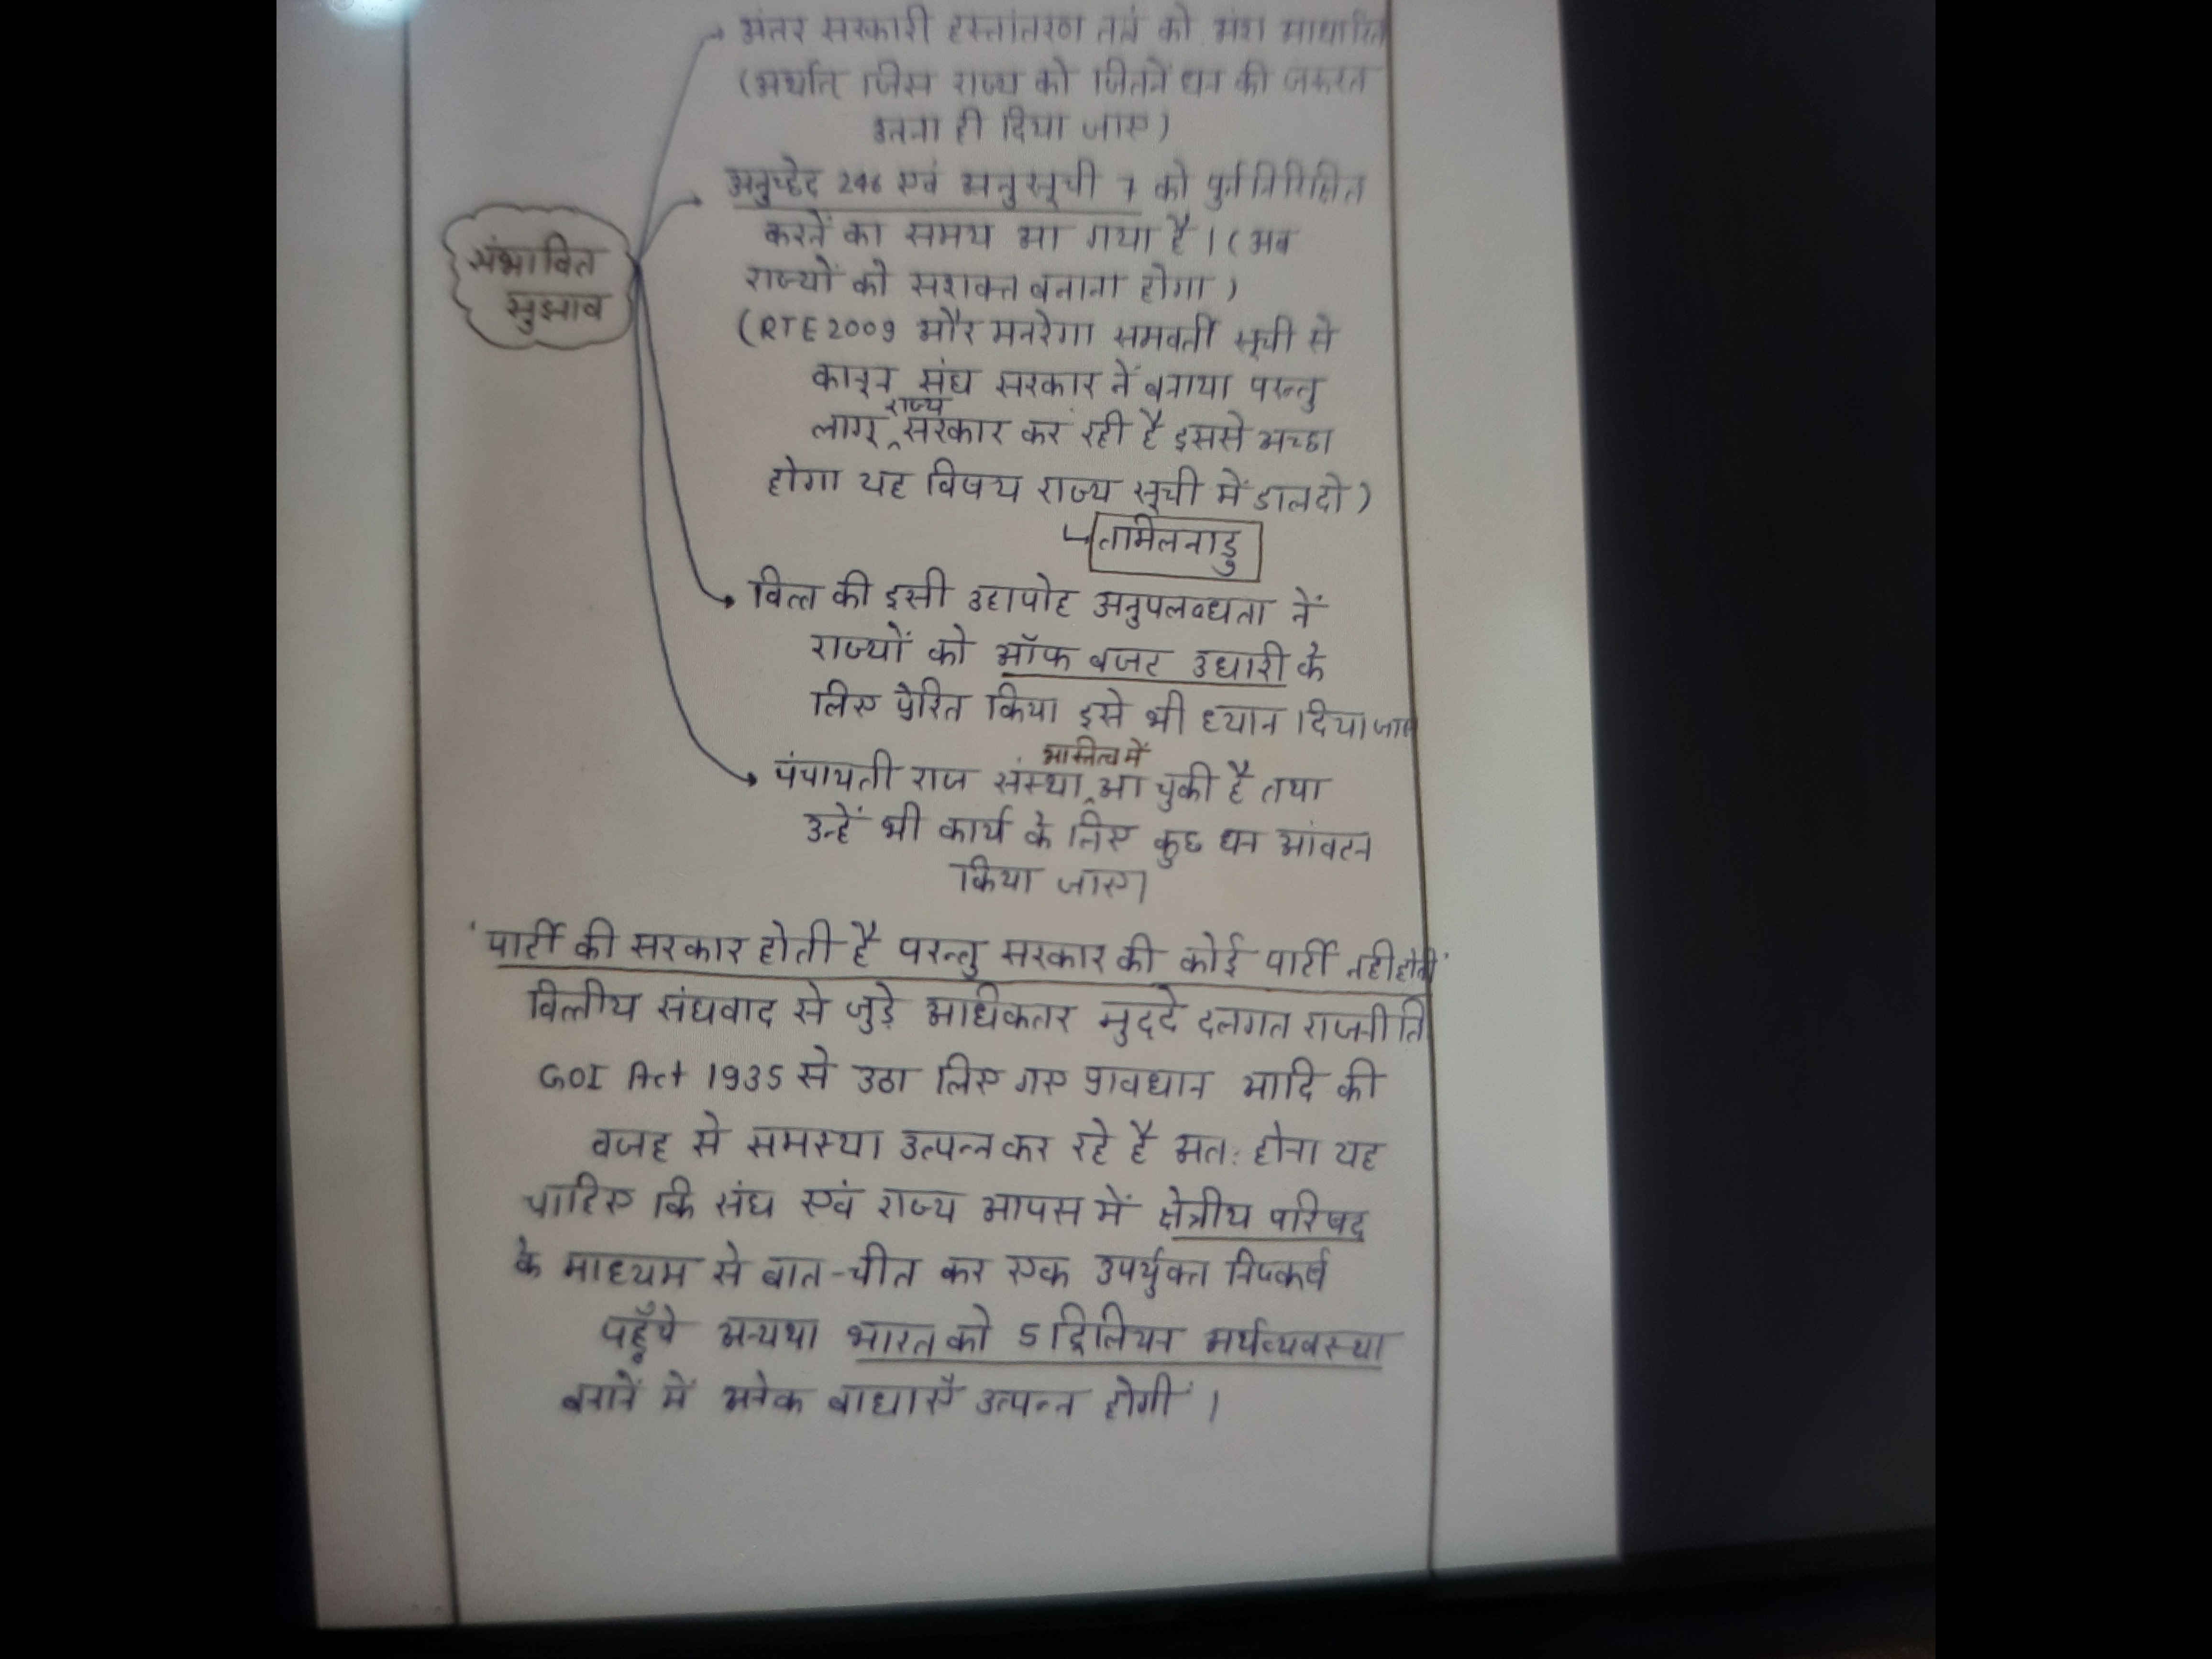 अंतर सरकारी हस्तांतरण तंत्र को अंश आधारित
(अर्थात जिस राज्य को जितने धन की जरूरत
उतना ही दिया जाए)
अनुच्छेद 246 एवं अनुसूची 7 को पुर्ननिरिक्षित
करनें का समय आ गया है। (अब
संभावित
सुझाव
राज्यों को सशक्त बनाना होगा)
(RTE 2009 और मनरेगा समवर्ती सूची से
कानून संघ सरकार नें बनाया परन्तु
लागू राज्य सरकार कर रही है इससे अच्छा
होगा यह विषय राज्य सूची में डाल दो)
तामिलनाडु
वित्त की इसी उहापोह अनुपलब्धता नें
राज्यों को ऑफ बजट उधारी के
लिए प्रेरित किया इसे भी ध्यान दिया जाए
पंचायती राज संस्था अस्तित्व में आ चुकी है तथा
उन्हें भी कार्य के लिए कुछ धन आंवटन
किया जाए।
'पार्टी की सरकार होती है परन्तु सरकार की कोई पार्टी नही होती'
वित्तीय संघवाद से जुड़े अधिकतर मुद्दे दलगत राजनीति
GOI Act 1935 से उठा लिए गए प्रावधान आदि की
वजह से समस्या उत्पन्न कर रहे है अत: होना यह
चाहिए कि संघ एवं राज्य आपस में क्षेत्रीय परिषद
के माध्यम से बात-चीत कर एक उपर्युक्त निष्कर्ष
पहुँचे अन्यथा भारत को 5 ट्रिलियन अर्थव्यवस्था
बनानें में अनेक बाधाएँ उत्पन्न होगीं।